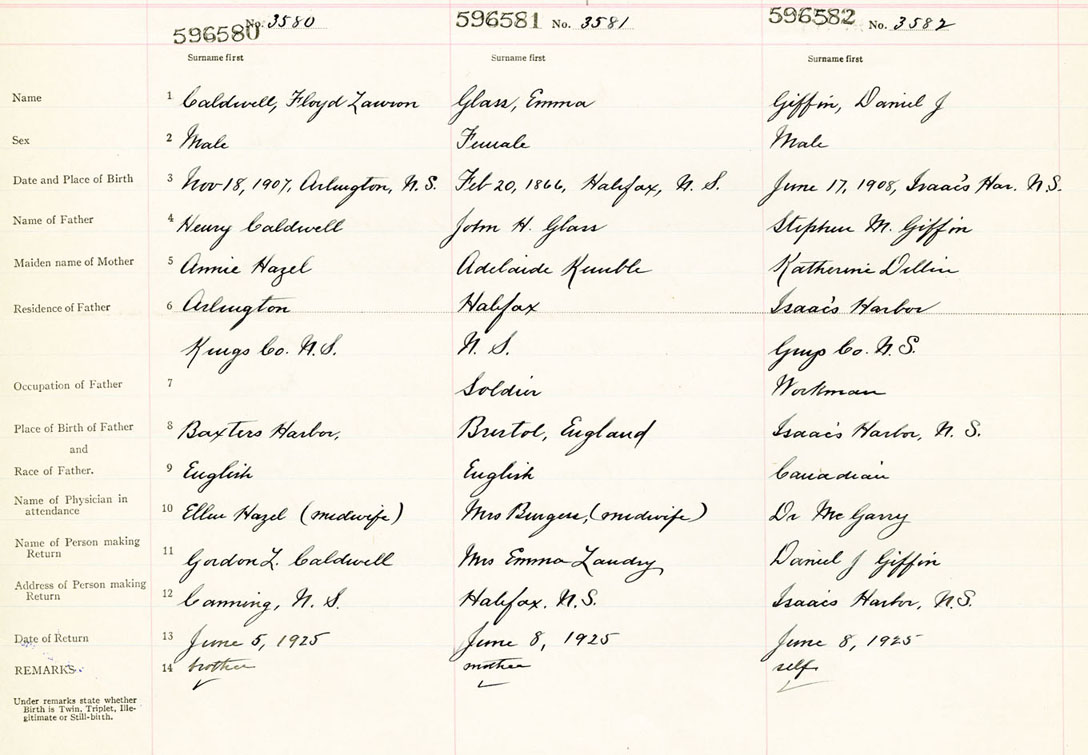 596580 No. 3580 596581 No. 3581 596582 No. 3582
Surname first Surname first Surname first
Name 1 Caldwell, Floyd Lawson Glass, Emma Giffin, Daniel J
Sex 2 Male Female Male
Date and Place of Birth 3 Nov 18, 1907, Arlington, N.S. Feb 20, 1866, Halifax, N.S. June 17, 1908, Isaac's Har. N.S.
Name of Father 4 Henry Caldwell John H. Glass Stephen M. Giffin
Maiden name of Mother 5 Annie Hazel Adelaide Kumble Katherine Dillin
Residence of Father 6 Arlington Halifax Isaac's Harbor
Kings Co. N.S. N.S. Guys Co. N.S.
Occupation of Father 7 Soldier Workman
Place of Birth of Father 8 Baxters Harbor, Bristol, England Isaac's Harbor, N.S.
and
Race of Father. 9 English English Canadian
Name of Physician in
attendance 10 Ellen Hazel (midwife) Mrs Burgess, (midwife) Dr McGarry
Name of Person making
Return 11 Gordon L. Caldwell Mrs Emma Landry Daniel J Giffin
Address of Person making
Return 12 Canning, N.S. Halifax. N.S. Isaacs Harbor, N.S.
Date of Return 13 June 5, 1925 June 8, 1925 June 8, 1925
REMARKS 14 brother mother self
Under remarks state whether
Birth is Twin, Triplet, Ille-
gitimate or Still-birth.